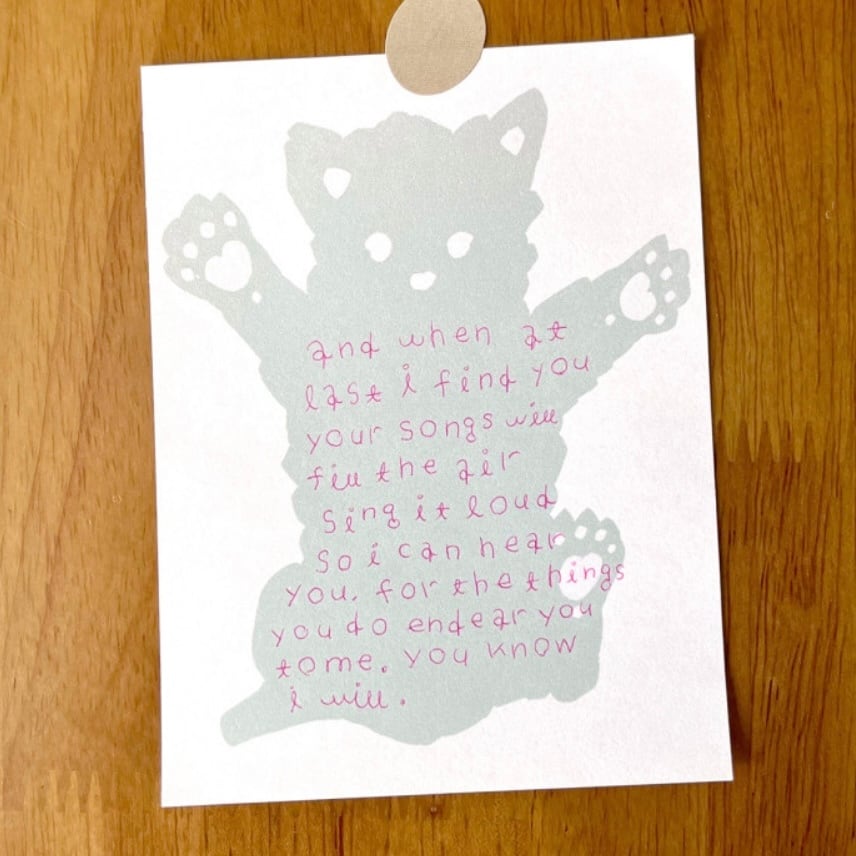 and when at
last i find you
your songs will
fill the air
sing it loud
so i can hear
you. for the things
you do endear you
to me. you know
i will.